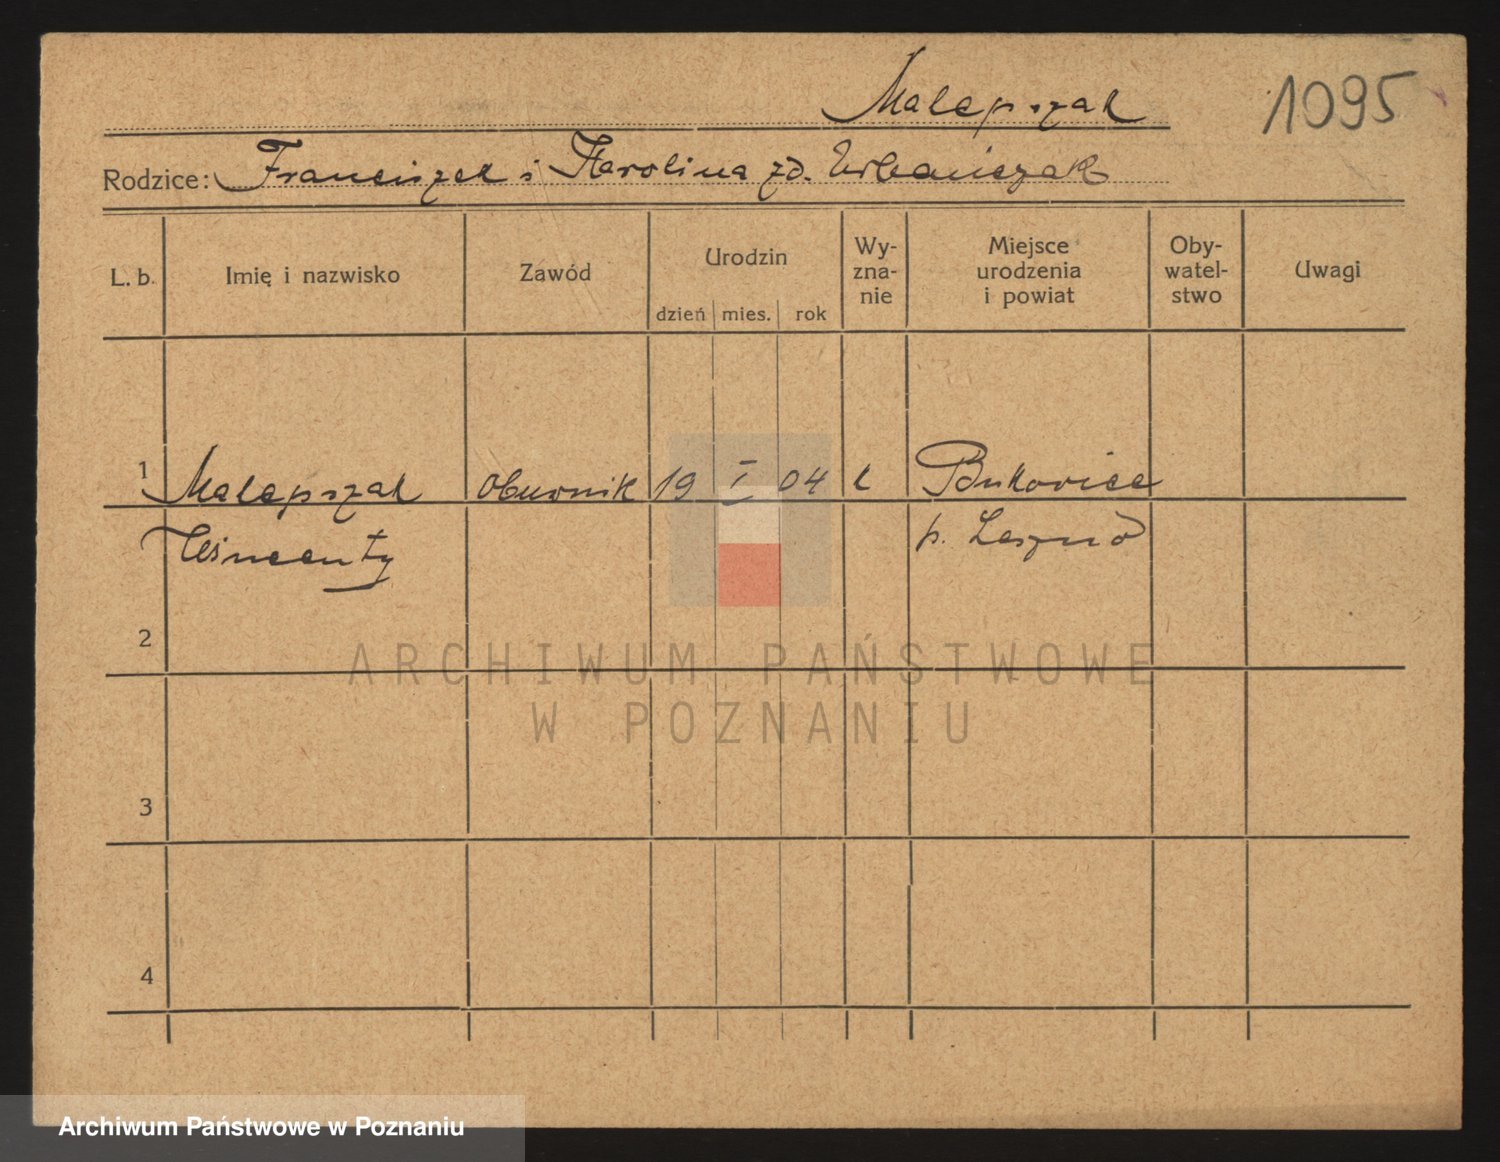 Malepszak
1095
Rodzice: Franciszek i Karolina zd. Urbańczak
L. b. Imię i nazwisko Zawód Urodzin dzień mies. rok Wy- zna- nie Miejsce urodzenia i powiat Oby- watel- stwo Uwagi
1 Malepszak obuwnik 19 I 04 k Bukowiec
Wincenty p. Leszno
2
ARCHIWUM PAŃSTWOWE
W POZNANIU
3
4
Archiwum Państwowe w Poznaniu